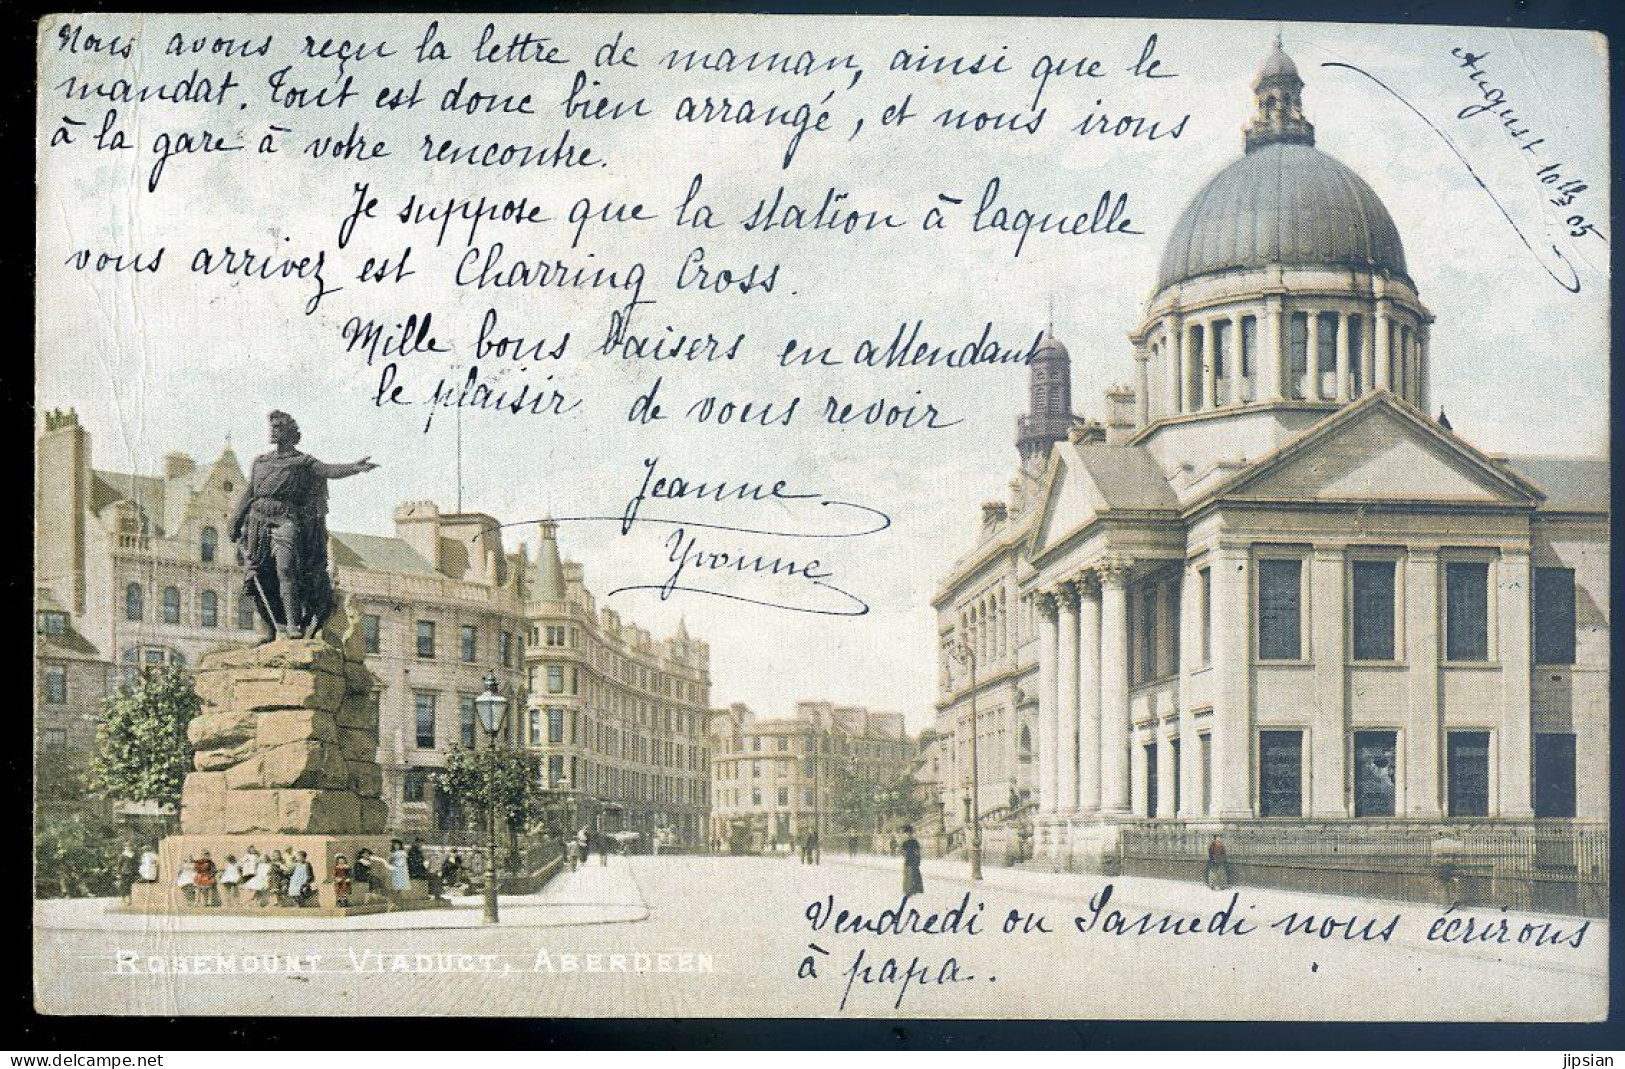 Nous avons reçu la lettre de maman, ainsi que le
mandat. Tout est donc bien arrangé, et nous irons
à la gare à votre rencontre.
Je suppose que la station à laquelle
vous arrivez est Charring Cross.
Mille bons baisers en attendant
le plaisir de vous revoir
Jeanne
Yvonne
August 10th 05
Vendredi ou Samedi nous écrirons
à papa.
ROSEMOUNT VIADUCT, ABERDEEN
delcampe.net
jipsian